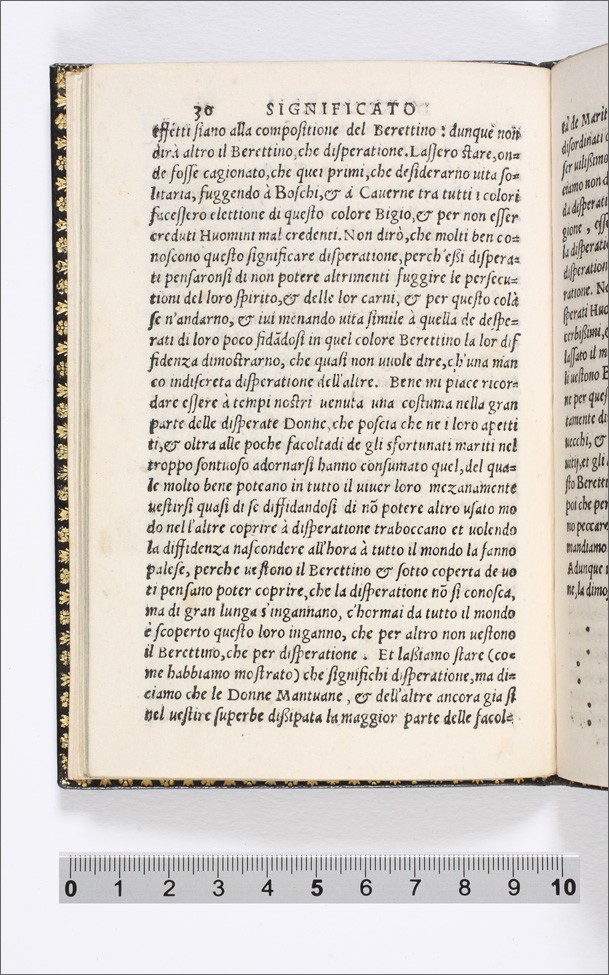 30 SIGNIFICATO
effetti siano alla compositione del Berettino : dunque non
dirà altro il Berettino, che disperatione. Lassero stare, on=
de fosse cagionato, che quei primi, che desiderarno uita so=
litaria, fuggendo à Boschi, & à Cauerne tra tutti i colori
facessero elettione di questo colore Bigio, & per non esser
creduti Huomini mal credenti. Non dirò, che molti ben co=
noscono questo significare disperatione, perch'essi dispera=
ti pensaronsi di non potere altrimenti fuggire le persecu=
tioni del loro spirito, & delle lor carni, & per questo colà
se n'andarno, & iui menando uita simile à quella de despe=
rati di loro poco fidãdosi in quel colore Berettino la lor dif
fidenza dimostrarno, che quasi non uuole dire, ch'una man
co indiscreta disperatione dell'altre. Bene mi piace ricor=
dare essere à tempi nostri uenuta una costuma nella gran
parte delle disperate Donne, che poscia che ne i loro apetti
ti, & oltra alle poche facoltadi de gli sfortunati mariti nel
troppo sontuoso adornarsi hanno consumato quel, del qua=
le molto bene poteano in tutto il uiuer loro mezanamente
uestirsi quasi di se diffidandosi di nõ potere altro usato mo
do nell'altre coprire à disperatione traboccano et uolendo
la diffidenza nascondere all'hora à tutto il mondo la fanno
palese, perche uestono il Berettino & sotto coperta de uo
ti pensano poter coprire, che la disperatione nõ si conosca,
ma di gran lunga s'ingannano, c'hormai da tutto il mondo
è scoperto questo loro inganno, che per altro non uestono
il Berettino, che per disperatione . Et lassiamo stare (co=
me habbiamo mostrato) che significhi disperatione, ma di=
ciamo che le Donne Mantuane, & dell'altre ancora gia si
nel uestire superbe dissipata la maggior parte delle facol=
0 1 2 3 4 5 6 7 8 9 10